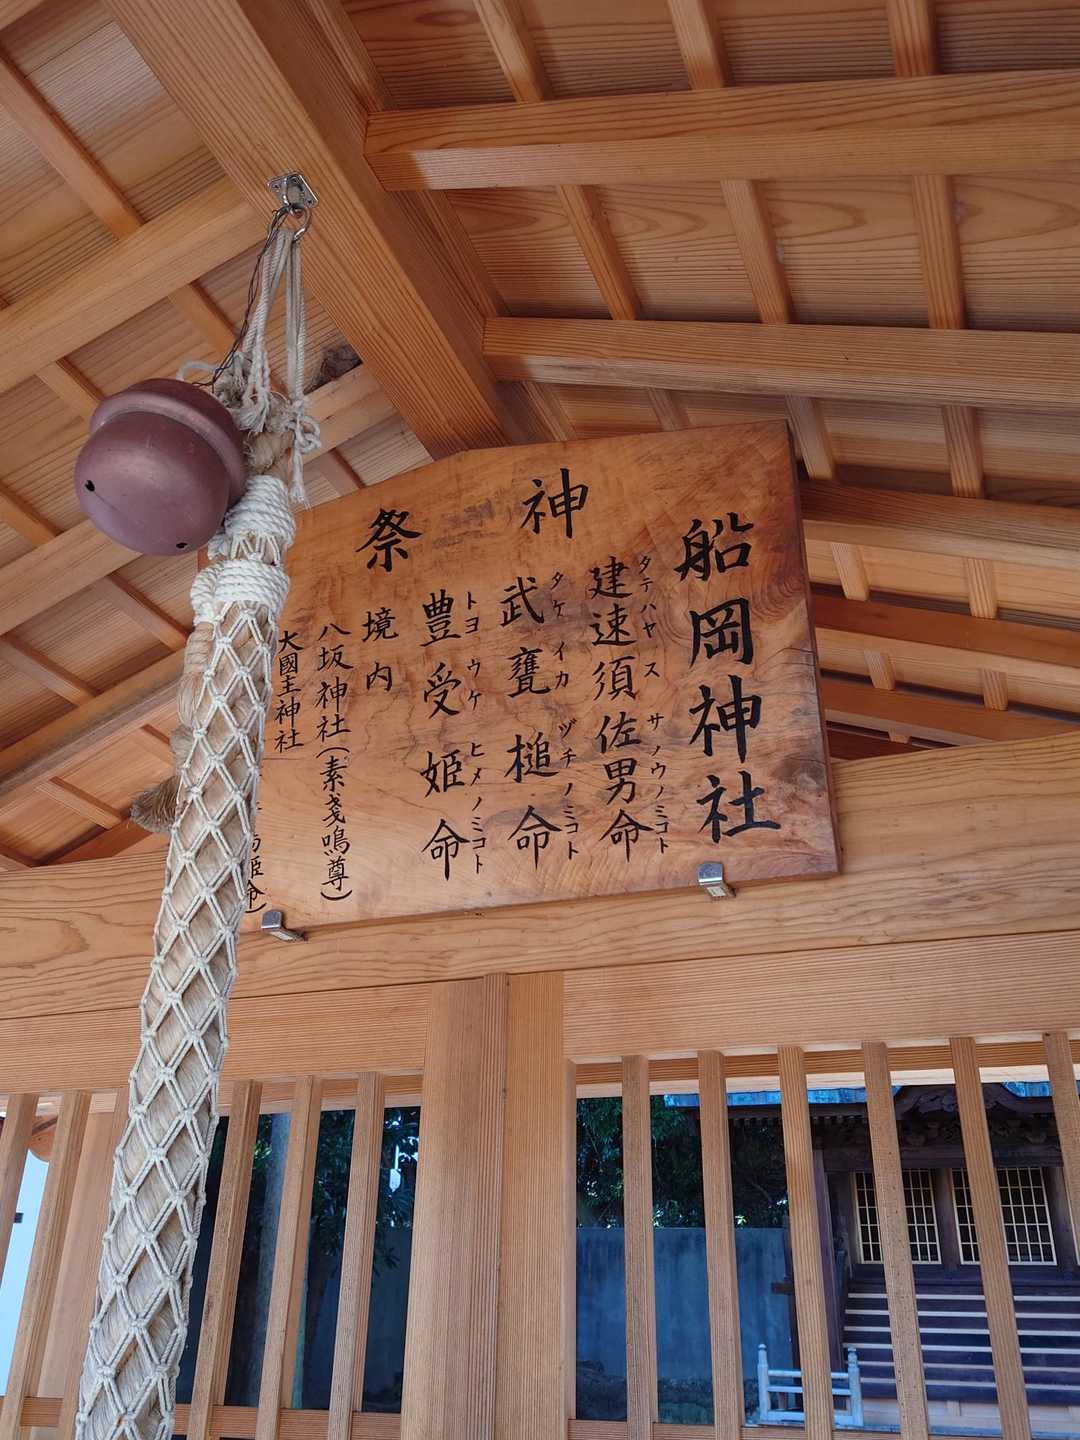 船岡神社
祭神
タテハヤスサノウノミコト
建速須佐男命
タケイカヅチノミコト
武甕槌命
トヨウケヒメノミコト
豊受姫命
境内
八坂神社(素戔鳴尊)
大國主神社
姫命)